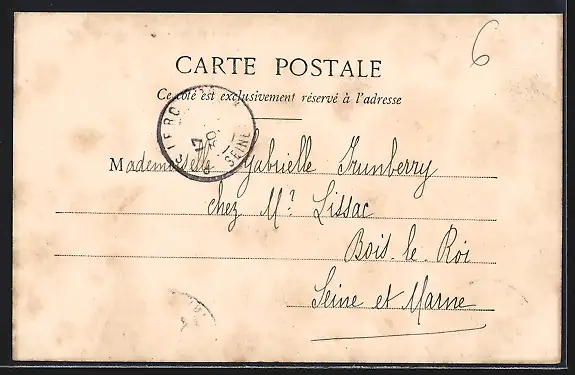 6
CARTE POSTALE
Ce côté est exclusivement réservé à l'adresse
SEINE
Mademoiselle Gabrielle Trunberry
chez Mr Lissac
Bois-le-Roi
Seine et Marne